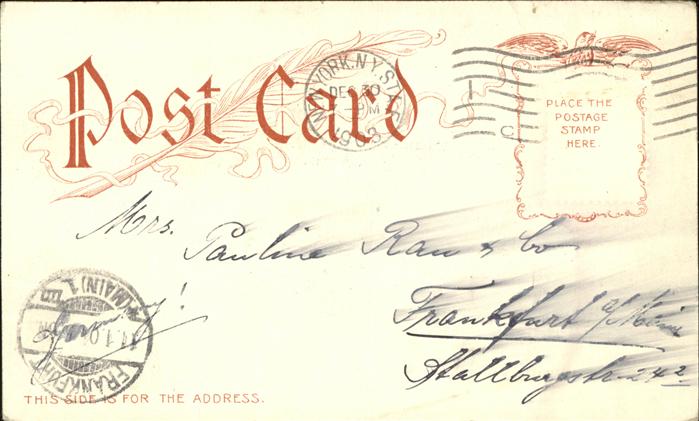 Post Card
NEW YORK, N.Y. STA. C
DEC 30
M
1903
C
PLACE THE
POSTAGE
STAMP
HERE.
Mrs. Pauline Rau & Co
Frankfurt a/Main
Stallburgstr 242
FRANKFURT (MAIN) 1.
11.1.0
THIS SIDE IS FOR THE ADDRESS.